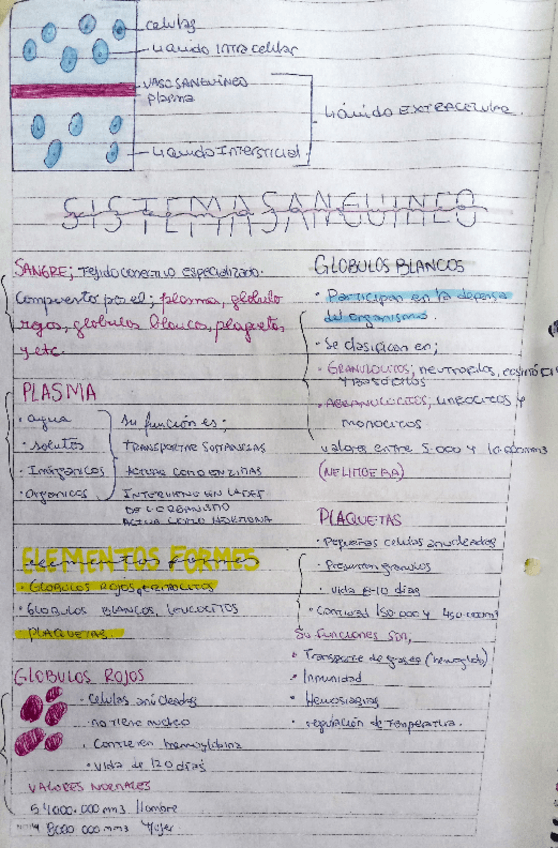 celulas
Liquido intracelular
VASO SANGUINEO
plasma
Liquido EXTRACELULAR.
Liquido Intersticial
SISTEMA SANGUINEO
SANGRE; Tejido conectivo especializado.
Compuerto por el; plasma, globulo
rojos, globulos blancos, plaquetas,
y etc.
PLASMA
• agua
• solutos
• Inorganicos
• Organicos
Su función es;
TRANSPORTAR SUSTANCIAS
ACTUA COMO ENZIMAS
INTERVIENE EN LA DEF
DEL ORGANISMO
ACTUA COMO HORMONA
ELEMENTOS FORMES
• GLOBULOS ROJOS, eritrocitos
• GLOBULOS BLANCOS, LEUCOCITOS
PLAQUETAS.
GLOBULOS ROJOS
• Celulas anúcleadas
• no tiene nucleo
• Contienen hemoglobina
• Vida de 120 días
VALORES NORMALES
54000.000 mm3 Hombre
48000 000 mm3 Mujer
GLOBULOS BLANCOS
• Participan en la defensa
del organismo.
• Se clasifican en;
• GRANULOCITOS; neutrofilos,
Y BASOCITOS
• AGRANULOCITOS, LINFOCITOS Y
MONOCITOS
valores entre 5.000 y
(NELIMBEBA)
PLAQUETAS
• Pequeñas celulas anucleadas
• Presentan granulos
• Vida 8-10 días
• Cantidad 150.000 y 450.000mm3
Su funciones son,
• Transporte de gases (hemoglob)
• Inmunidad
• Hemostagias
• regulación de Temperatura.